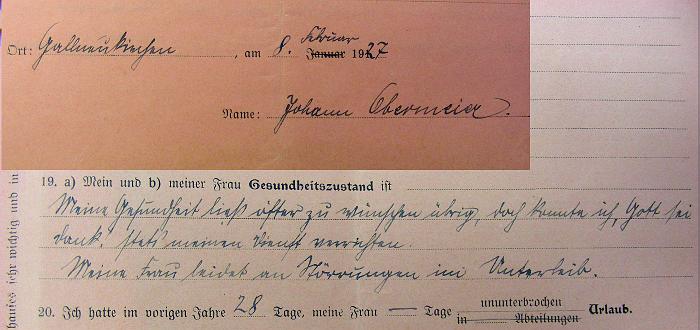 Ort: Gallneukirchen, am 8. Februar Januar 1927
Name: Johann Obermeier.
19. a) Mein und b) meiner Frau Gesundheitszustand ist
Meine Gesundheit ließ öfter zu wünschen übrig, doch konnte ich, Gott sei
dank, stets meinen Dienst verrichten.
Meine Frau leidet an Störrungen im Unterleib.
20. Ich hatte im vorigen Jahre 28 Tage, meine Frau — Tage ununterbrochen in Abteilungen Urlaub.
hauses sehr wichtig und in